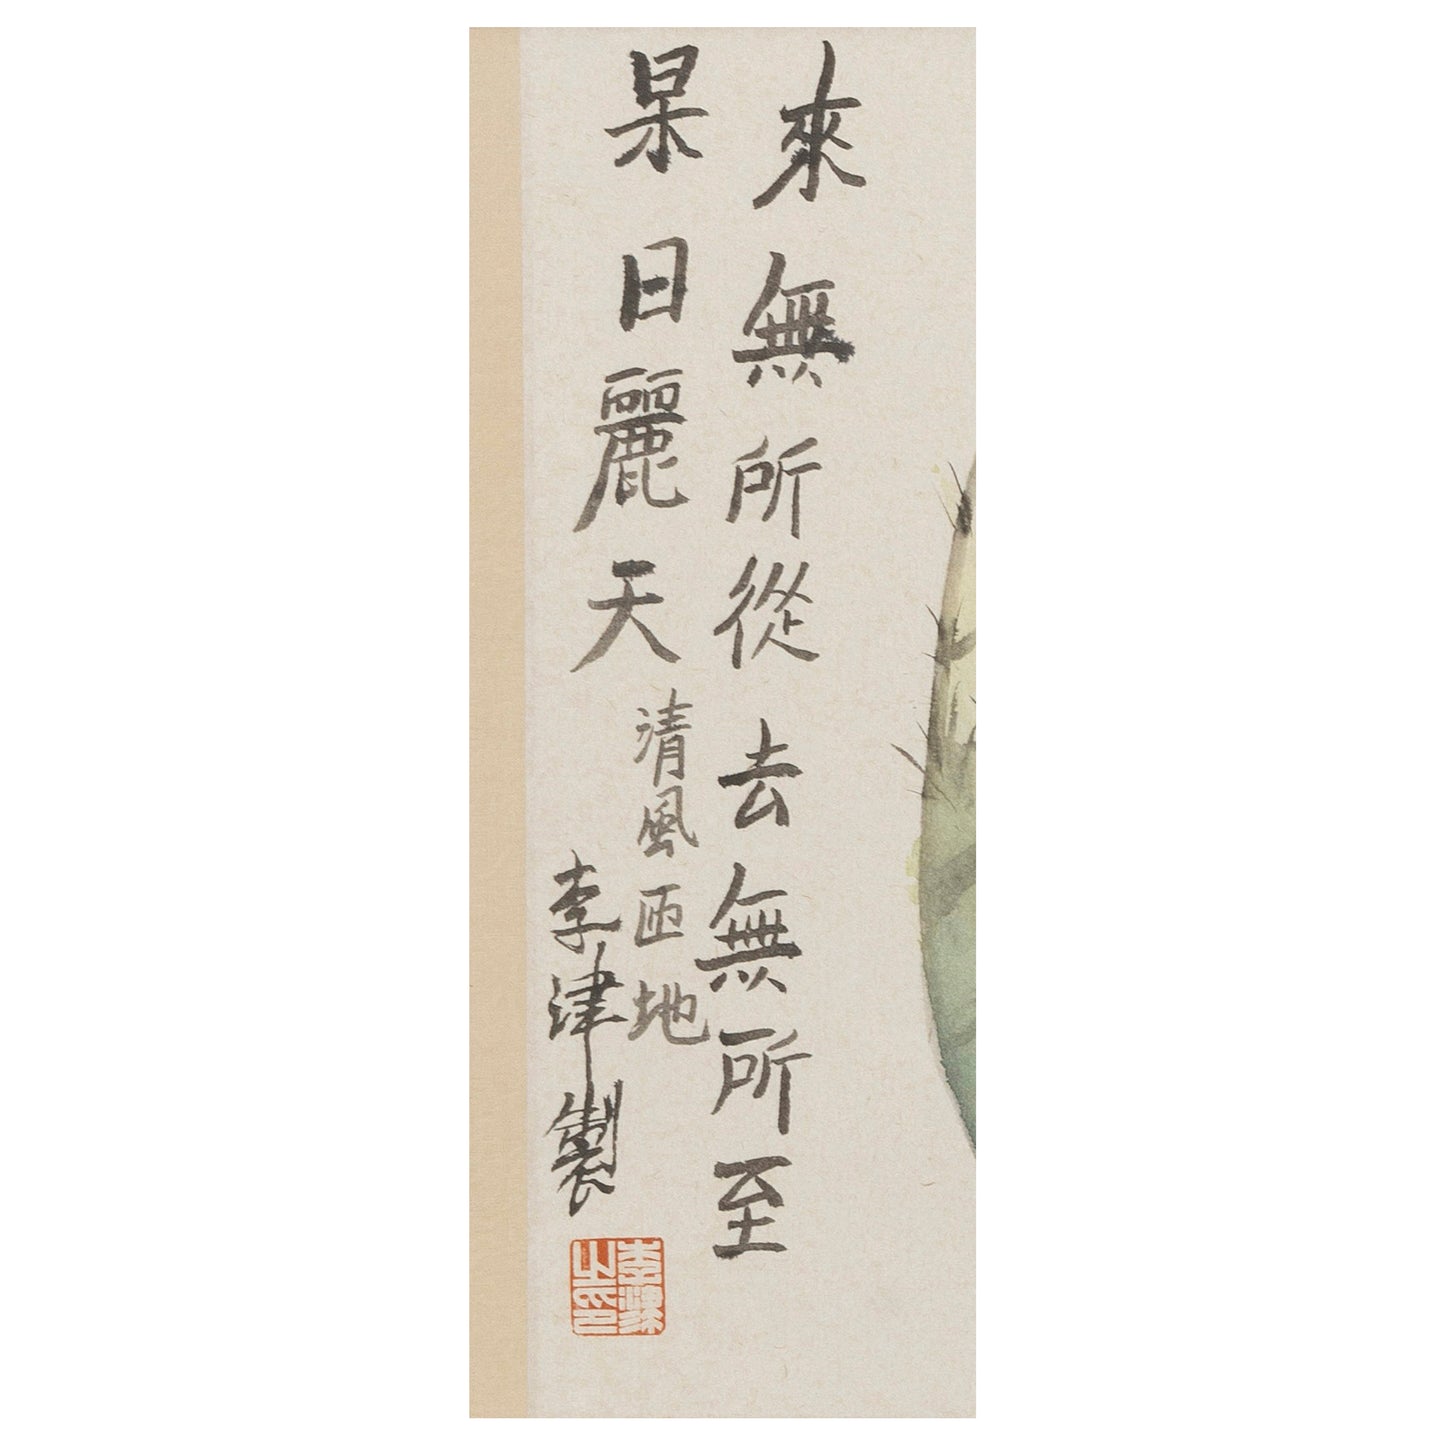 來無所從去無所至
杲日麗天
清風匝地
李津製
李津之印